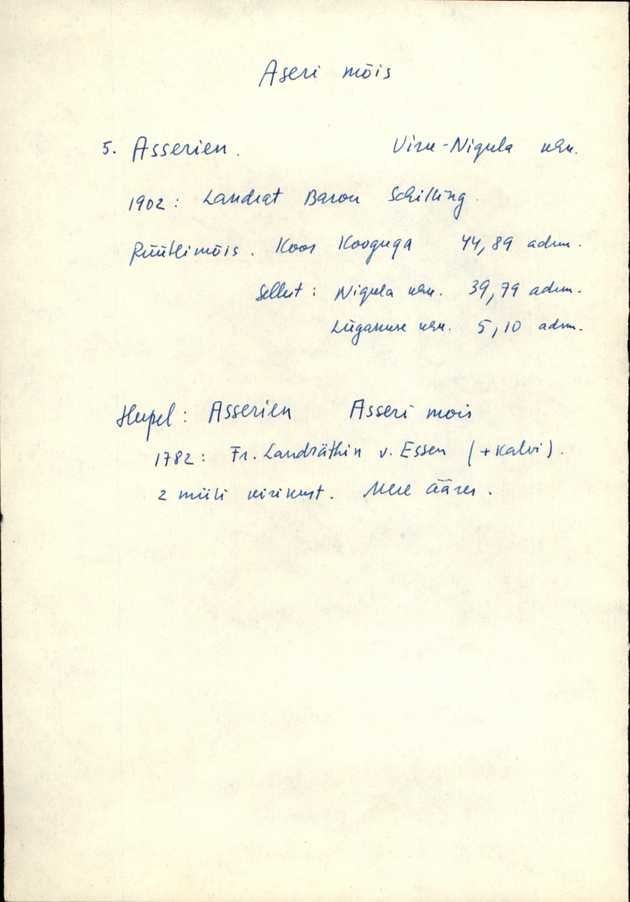 Aseri mõis
5. Asserien. Viru-Nigula khn.
1902: Landrat Baron Schilling.
Rüütlimõis. Koos Kooguga 44,89 adrm.
Sellest: Nigula khn. 39,79 adrm.
Lüganuse khn. 5,10 adrm.
Hupel: Asserien Asseri mois
1782: Fr. Landräthin v. Essen (+Kalvi).
2 miili kirikust. Mere ääres.